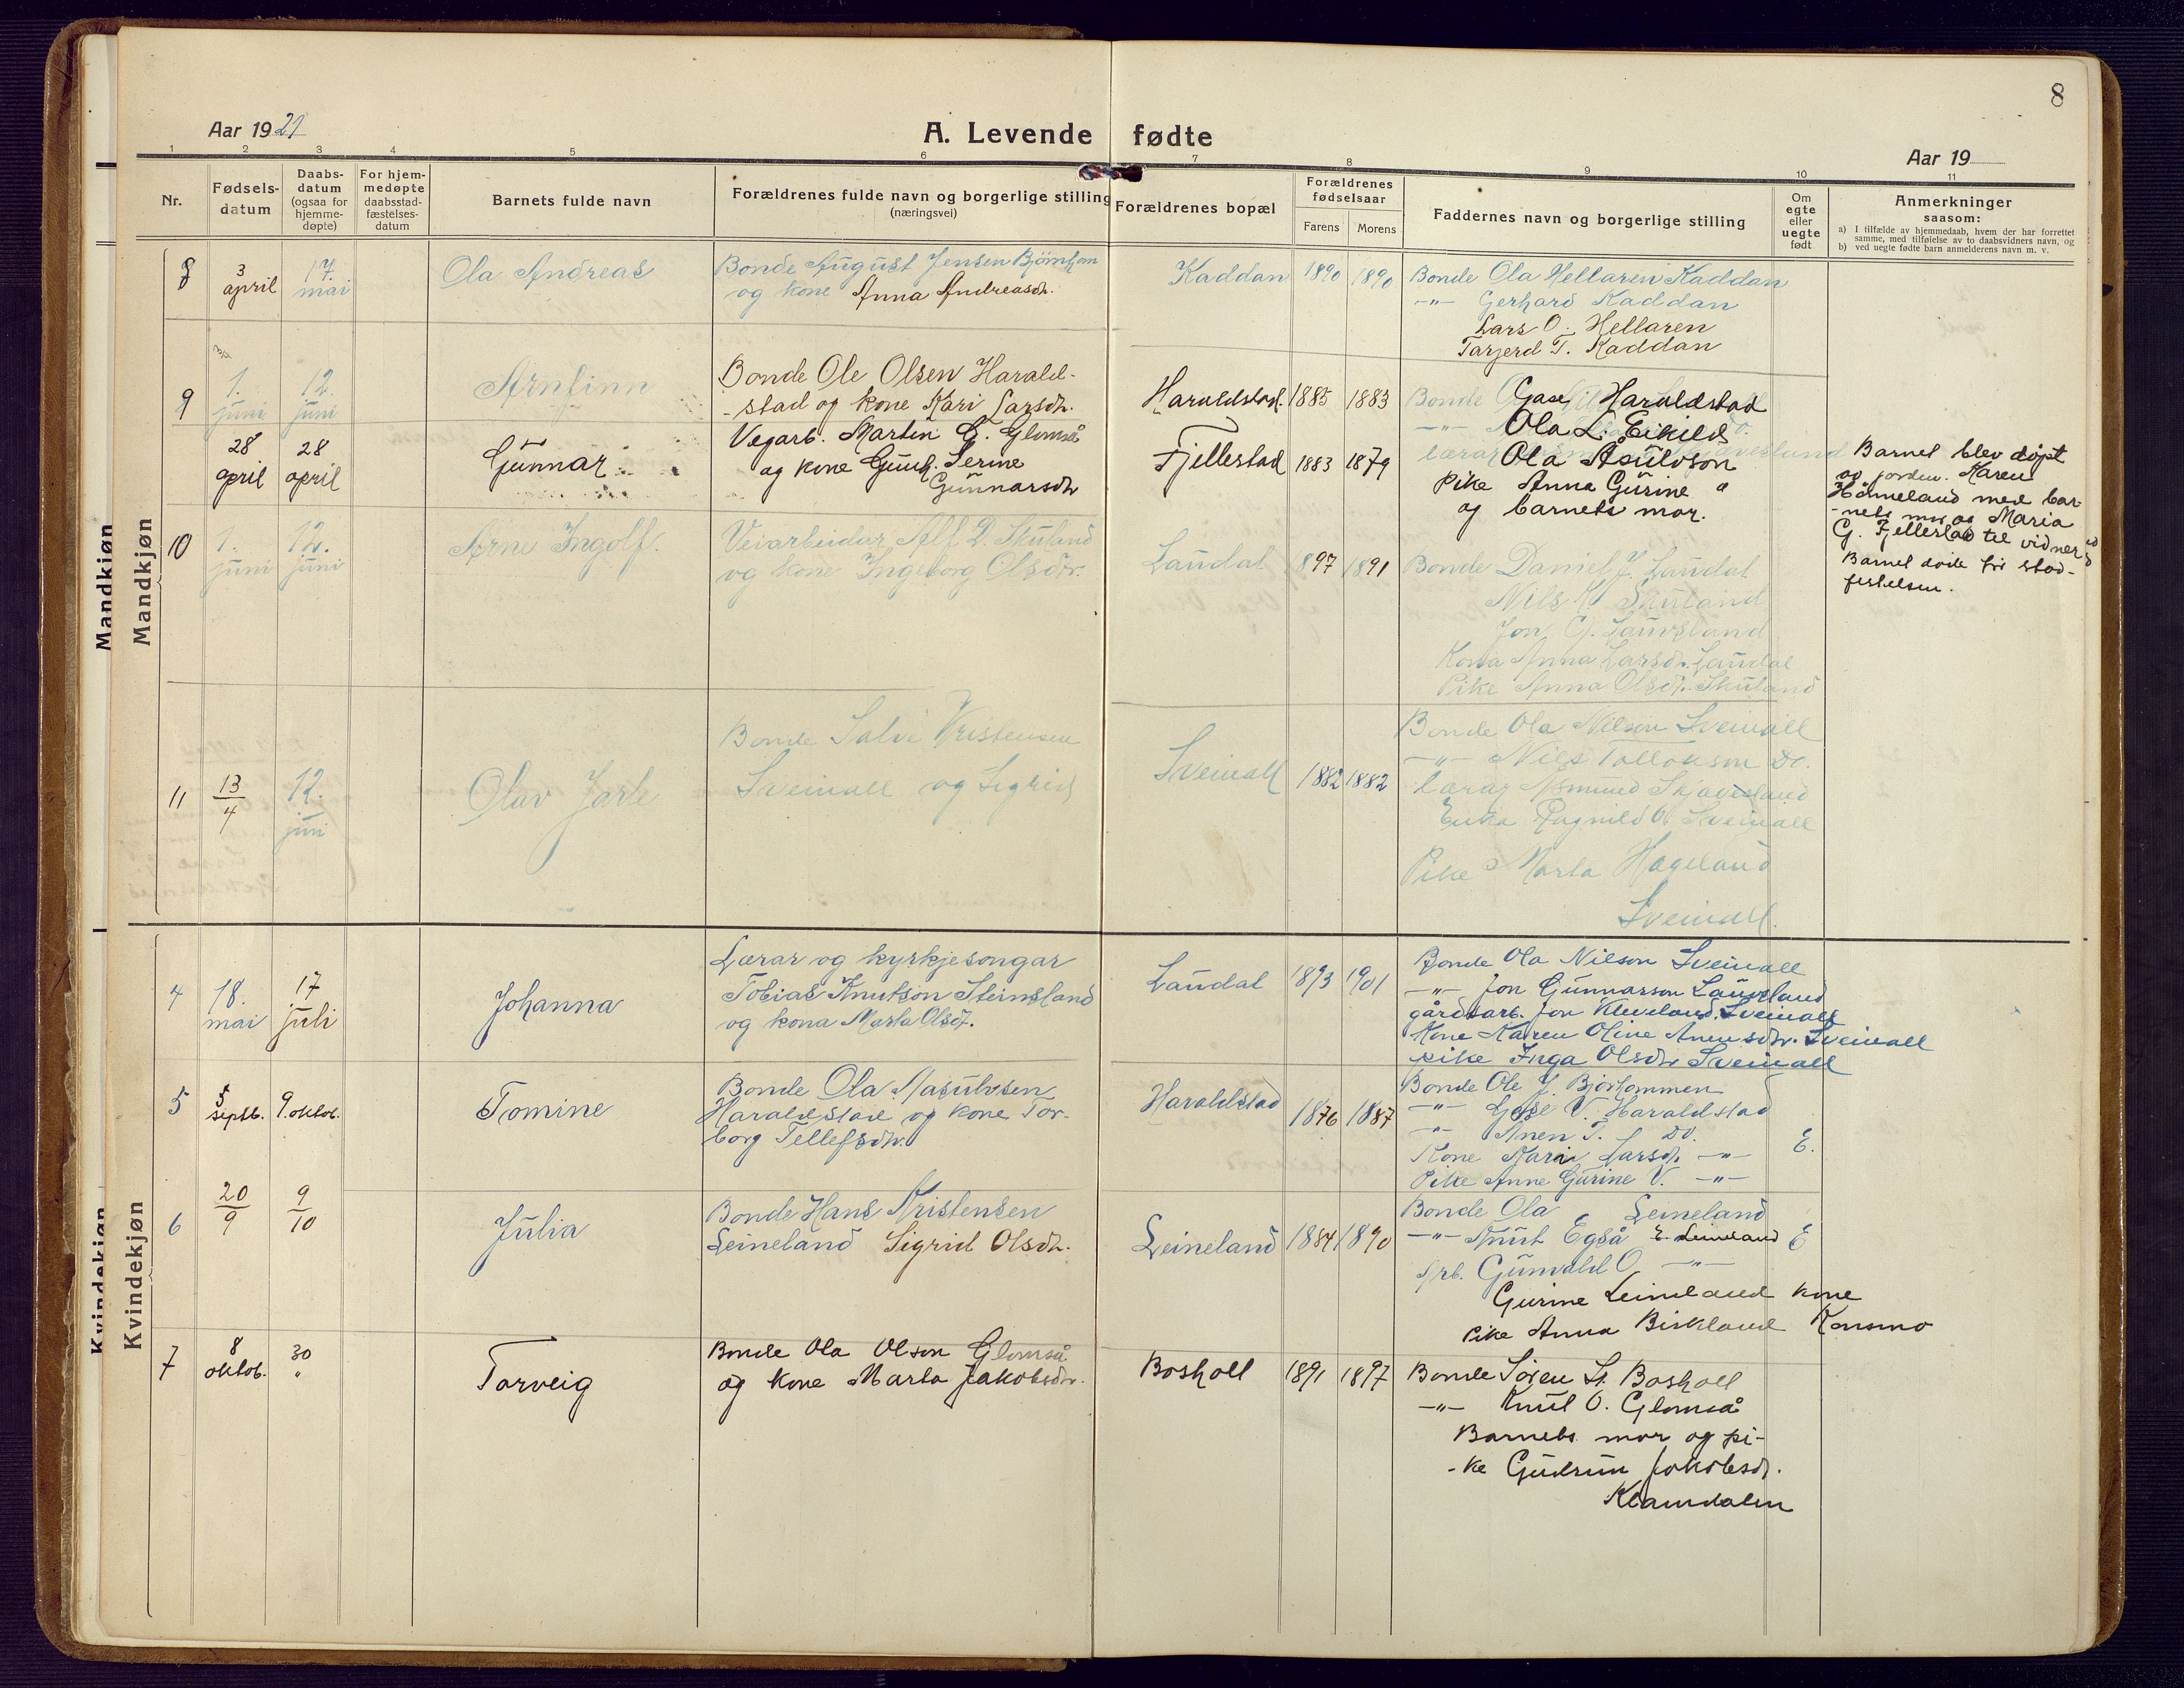 8
Aar 1921
A. Levende fødte
Aar 19
1 2 3 4 5 6 7 8 9 10 11
Nr.
Fødsels-
datum
Daabs-
datum
(ogsaa for
hjemme-
døpte)
For hjem-
medøpte
daabsstad-
fæstelses-
datum
Barnets fulde navn
Forældrenes fulde navn og borgerlige stilling
(næringsvei)
Forældrenes bopæl
Forældrenes
fødselsaar
Farens Morens
Faddernes navn og borgerlige stilling
Om
egte
eller
uegte
født
Anmerkninger
saasom:
a) I tilfælde av hjemmedaab, hvem der har forrettet
samme, med tilføielse av to daabsvidners navn, og
b) ved uegte fødte barn anmelderens navn m. v.
Mandkjøn
Mandkjøn
8
3
april
17.
mai
Ola Andreas
Bonde August Jensen
og kone Anna Andreasdr.
Kaddan
1890 1890
Bonde Ola Hellaren Kaddan
-"- Gerhard Kaddan
Lars O. Hellaren
Tarjerd T. Kaddan
9
1.
juni
12.
juni
Arnfinn
Bonde Ole Olsen Harald-
-stad og kone Kari Larsdr.
Haraldstad
1885 1883
Bonde Gase Haraldstad
-"- Ola L. Eikild
28
april
28
april
Gunnar
Vegarb. Martin G. Glomså
og kone Gunh. Serine
Gunnarsdr
Fjellestad
1883 1879
Ola Asulvson
Pike Anna Gurine "
og barnets mor.
Barnet blev døpt
av jordm. Karen
Hånneland med bar-
-nets mor og Maria
G. Fjellestad til vidner
Barnet døde før stad-
festelsen.
10
1.
juni
12.
juni
Arne Ingolf.
Veiarbeidar Alf D. Skuland
og kone Ingeborg Olsdtr.
Laudal
1897 1891
Bonde Daniel J. Laudal
Nils Skuland
Jon G. Lauvsland
Kona Anna Larsdr. Laudal
Pike Anna Olsdr. Skuland
11
13
4
12.
juni
Olav Jarle
Bonde Salve Kristensen
Sveinall og Sigrid
Sveinall
1882 1882
Bonde Ola Nilson Sveinall
-"- Nils Tallakson Do.
lærar Asmund Skjævesland
Enka Ragnild O. Sveinall
Pike Marta Hageland
Sveinall
Kvindekjøn
Kvindekjøn
4
18.
mai
17
juli
Johanna
Lærar og kyrkjesongar
Tobias Knutson Steinsland
og kona Marta Olsdr.
Laudal
1893 1901
Bonde Ola Nilson Sveinall
-"- Jon Gunnarson Lauvsland
gårdsarb. Jon Kleveland. Sveinall
Kone Karen Oline Anensdr. Sveinall
pike Inga Olsdr Sveinall
5
5
septb.
9. oktob.
Tomine
Bonde Ola Asulvsen
Haraldstad og kone Tor-
borg Tellefsdr.
Haraldstad
1876 1887
Bonde Ole J. Bjørkommen
-"- Gase V. Haraldstad
-"- Anen T. Do.
Kone Kari Larsdr. -"-
Pike Anne Gurine V. -"-
E.
6
20
9
9
10
Julia
Bonde Hans Kristensen
Leineland Sigrid Olsdr.
Leineland
1884 1890
Bonde Ola Leineland
-"- Knut Egså E. Leineland
Arb. Gunvald O. -"-
Gurine Leineland kone
Pike Anna Birkland Konsmo
E
7
8
oktob.
30
"
Torveig
Bonde Ola Olson Glomså
og kone Marta Jakobsdr.
Bosholl
1891 1897
Bonde Søren St. Bosholl
-"- Knut O. Glomså
Barnets mor og pi-
-ke Gudrun Jakobsdr.
Klamdalen